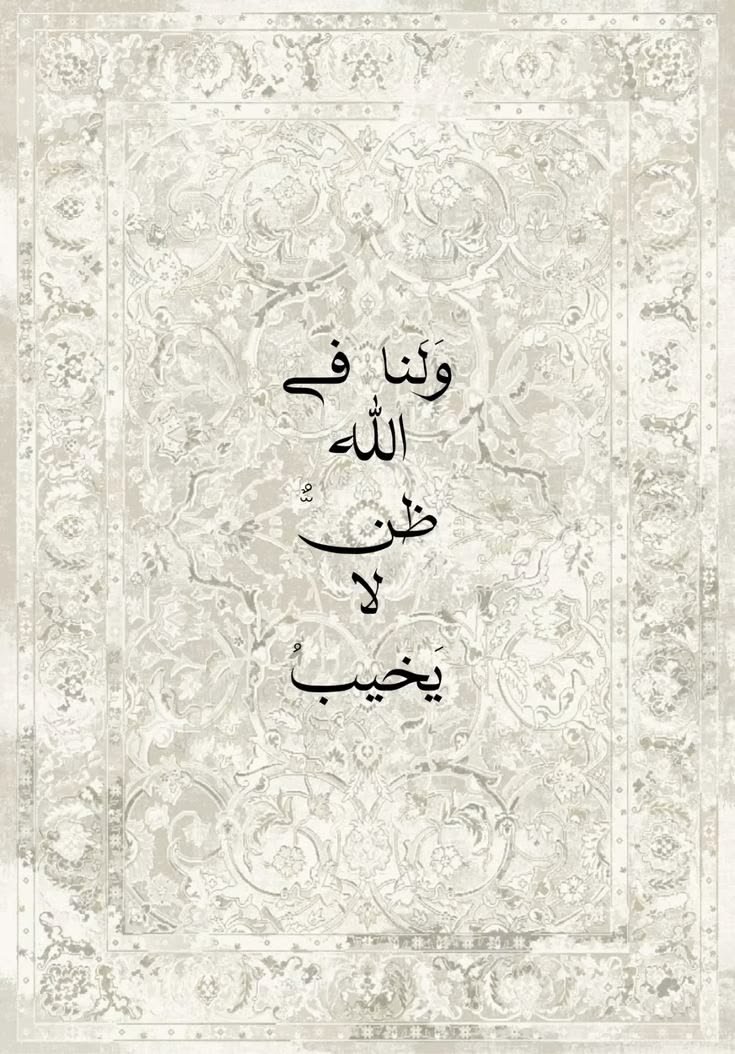 وَلَنا في
الله
ظنٌّ
لا
يَخيبُ